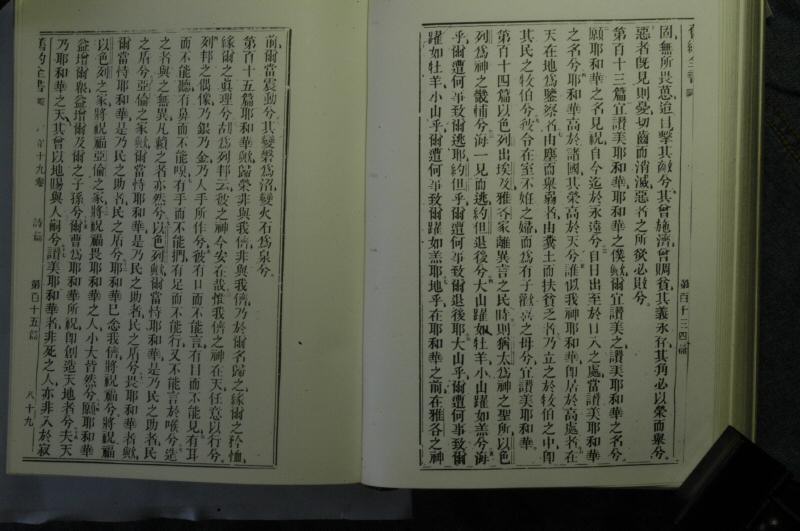 舊約全書
第百十三四篇
固無所畏葸迨目擊其敵兮其曾施濟曾賙貧其義永存其角必以榮而舉兮
惡者旣見則憂切齒而消滅惡者之所欲必敗兮
第百十三篇宜讚美耶和華耶和華之僕歟爾宜讚美之讚美耶和華之名兮
願耶和華之名見祝自今迄於永遠兮自日出至於日入之處當讚美耶和華
之名兮耶和華高於諸國其榮高於天兮誰似我神耶和華卽居於高處者在
天在地為鑒察者由塵而舉弱者由糞土而扶貧乏者乃立之於牧伯之中卽
其民之牧伯兮彼令在室不姙之婦而為有子歡喜之母兮宜讚美耶和華
第百十四篇以色列出埃及雅各家離異言之民時則猶太為神之聖所以色
列為神之骰補兮海一見而逃約但退後兮大山躍如牡羊小山躍如羔兮海
乎爾遭何事致爾逃耶約但乎爾遭何事致爾退後耶大山乎爾遭何事致爾
躍如牡羊小山乎爾遭何事致爾躍如羔耶地乎在耶和華之前在雅各之神
前爾當震動兮其變磐為沼變火石為泉兮
第百十五篇耶和華歟歸榮非與我儕非與我儕乃於爾名歸之緣爾之矜恤
緣爾之眞理兮胡為列邦云彼之神今安在哉惟我儕之神在天任意以行兮
列邦之偶像乃銀乃金乃人手所作兮彼有口而不能言有目而不能見有耳
而不能聽有鼻而不能嗅有手而不能捫有足而不能行又不能言於喉兮造
之者與之無異凡賴之者亦然兮以色列歟爾當恃耶和華是乃民之助者民
之盾兮亞倫之家歟爾當恃耶和華是乃民之助者民之盾兮畏耶和華者歟
爾當恃耶和華是乃民之助者民之盾兮耶和華已念我儕將祝福兮將祝福
以色列之家將祝福亞倫之家將祝福畏耶和華之人小大皆然兮願耶和華
益增爾眾益增爾及爾之子孫兮爾曹為耶和華所祝卽創造天地者兮夫天
乃耶和華之天其曾以地賜與人嗣兮讚美耶和華者非死之人亦非入於寂
舊約全書
第十九卷
詩篇
第百十五篇
八十九